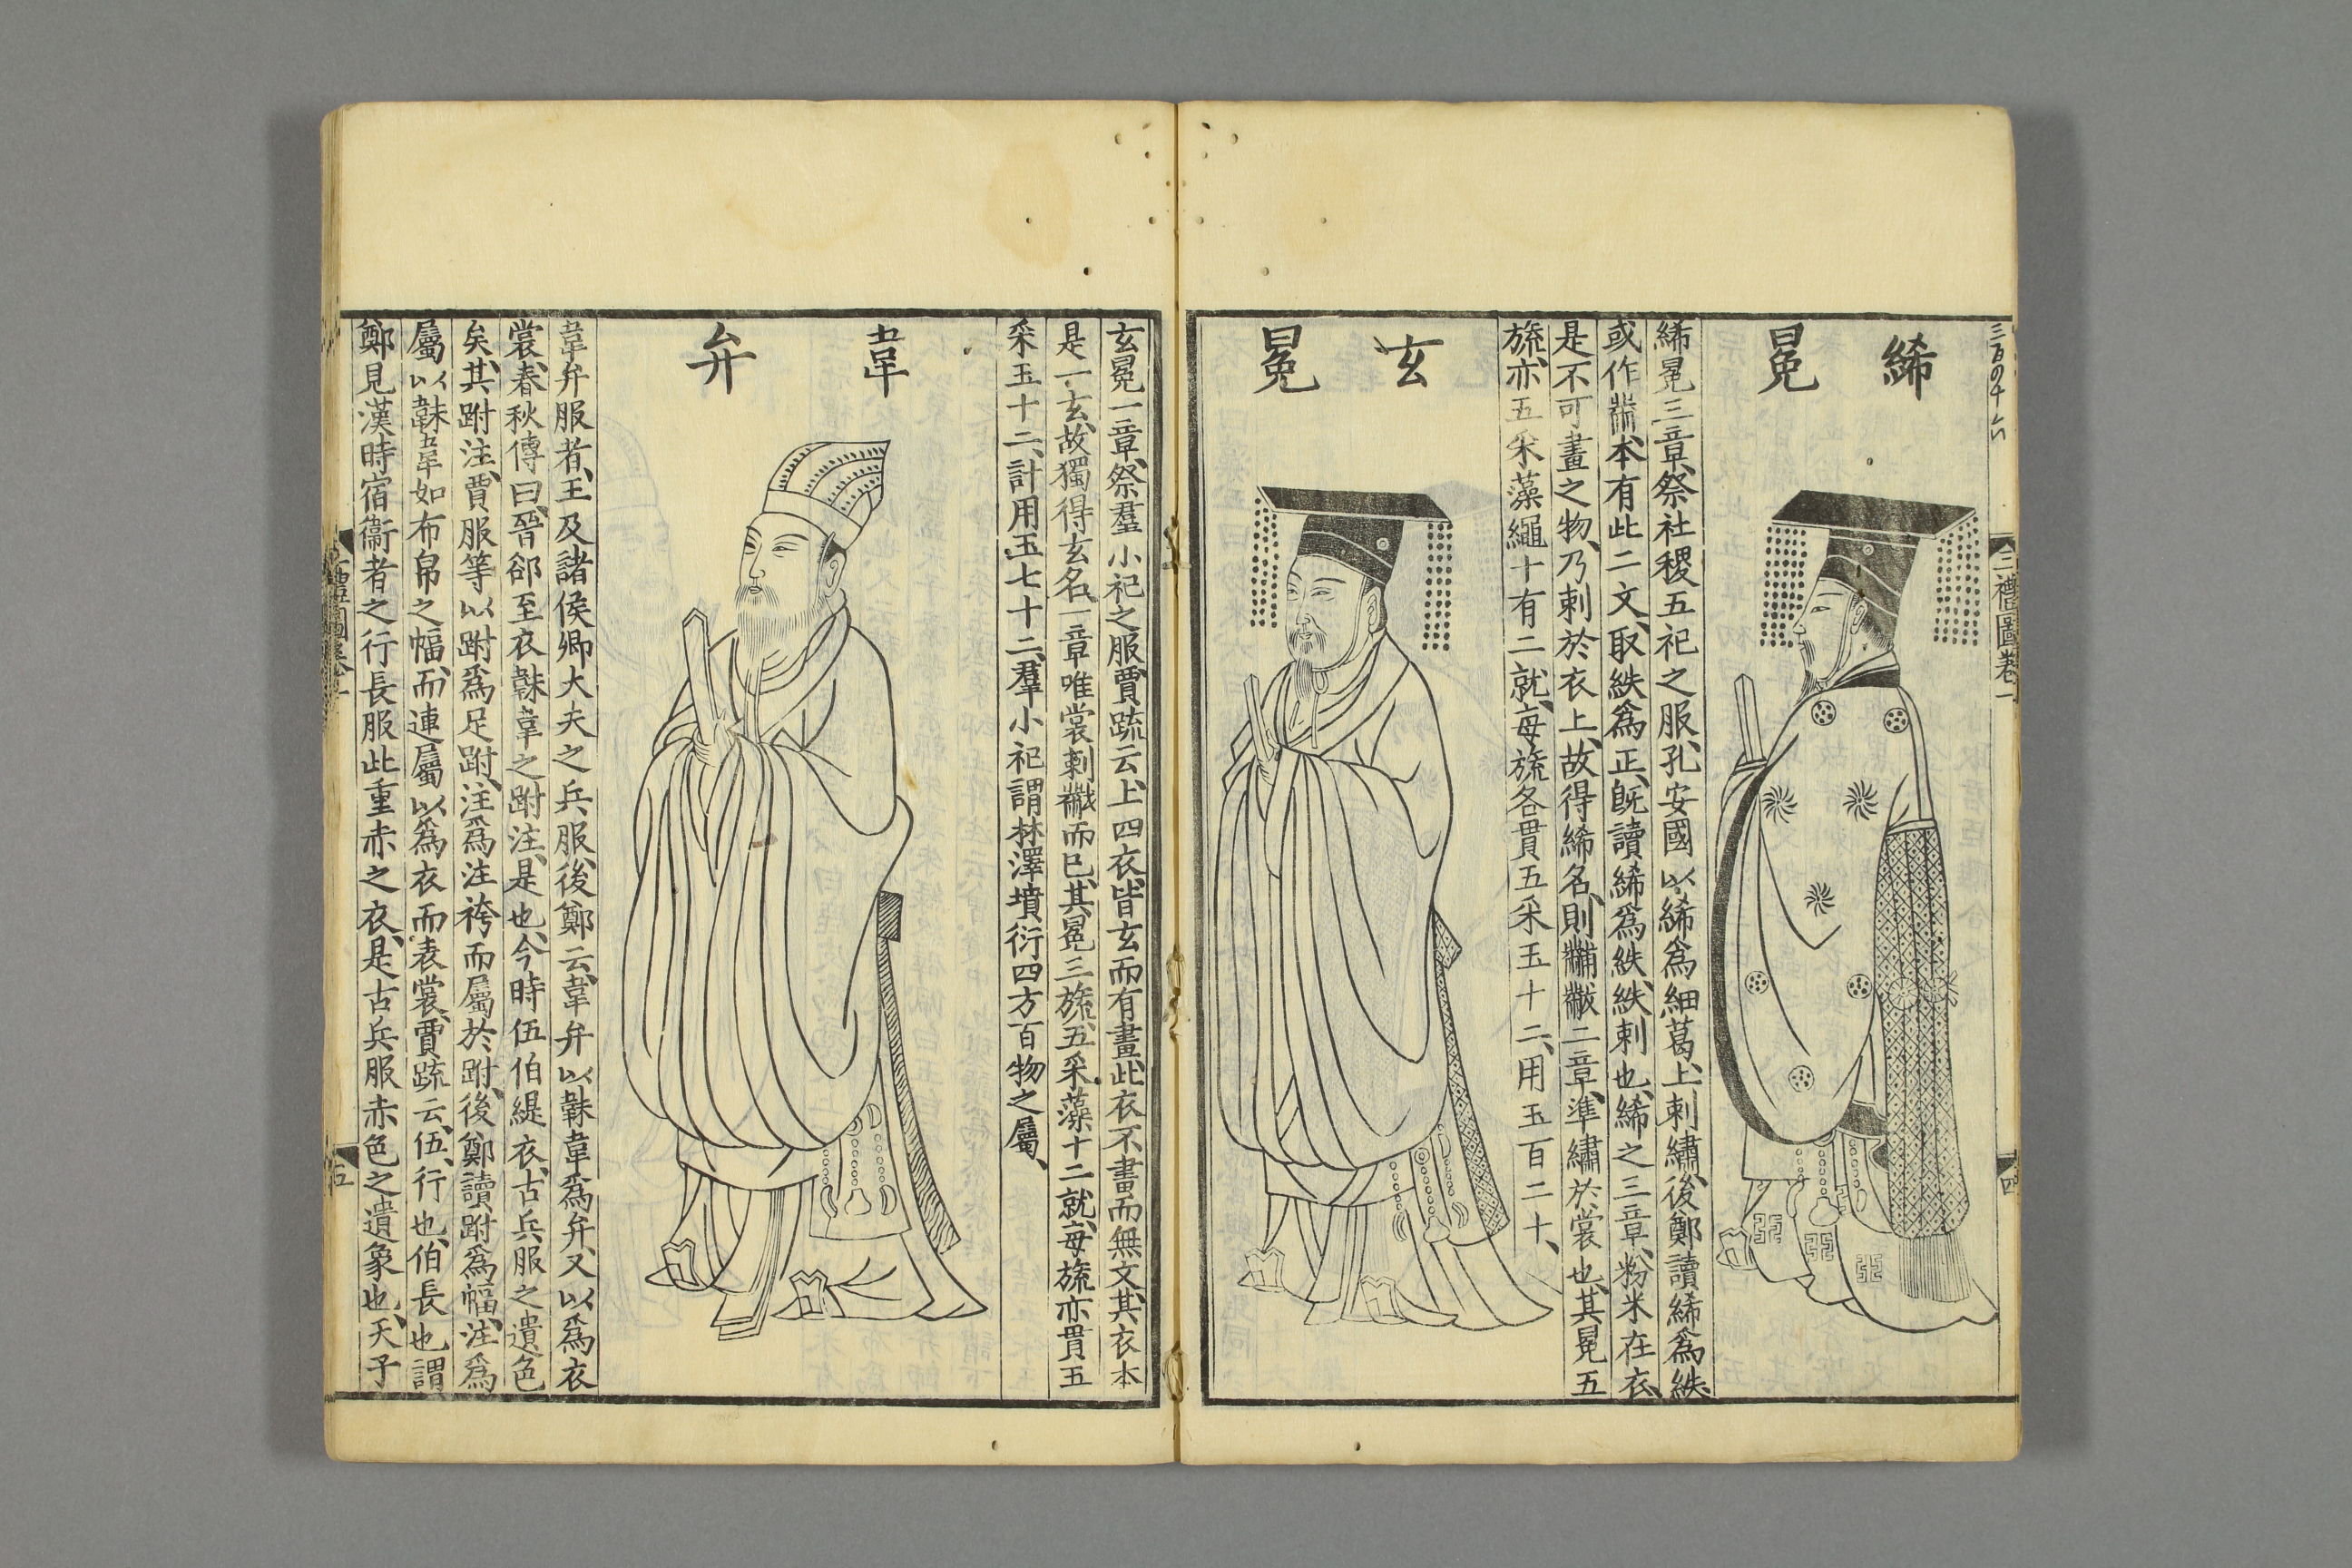 三禮圖卷一
四
絺冕
絺冕三章祭社稷五祀之服孔安國以絺爲細葛上刺繡後鄭讀絺爲紩
或作黹本有此二文取紩爲正旣讀絺爲紩紩刺也絺之三章粉米在衣
是不可畫之物乃刺於衣上故得絺名則黼黻二章準繡於裳也其冕五
旒亦五采藻繩十有二就每旒各貫五采玉十二用玉百二十
玄冕
玄冕一章祭羣小祀之服賈疏云上四衣皆玄而有畫此衣不畫而無文其衣本
是一玄故獨得玄名一章唯裳刺黻而已其冕三旒五采藻十二就每旒亦貫五
采玉十二計用玉七十二羣小祀謂林澤墳衍四方百物之屬
韋弁
韋弁服者王及諸侯卿大夫之兵服後鄭云韋弁以韎韋爲弁又以爲衣
裳春秋傳曰晉郤至衣韎韋之跗注是也今時伍伯緹衣古兵服之遺色
矣其跗注賈服等以跗爲足跗注爲注袴而屬於跗後鄭讀跗爲幅注爲
屬以韎韋如布帛之幅而連屬以爲衣而表裳賈疏云伍行也伯長也謂
鄭見漢時宿衞者之行長服此重赤之衣是古兵服赤色之遺象也天子
五